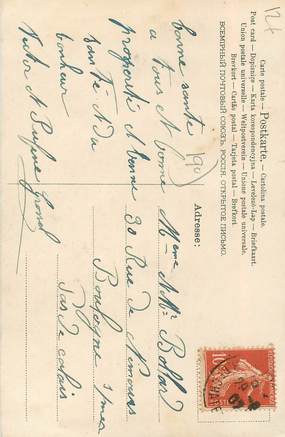 Carte postale — Postkarte. — Cartolina postale.
Post card — Dopisnice — Karta korespondencyjna — Levelező-Lap — Briefkaart.
Union postale universelle. — Weltpostverein — Unione postale universale.
Brefkort — Cartão postal — Tarjeta postal — Brevkort
ВСЕМІРНЫЙ ПОЧТОВЫЙ СОЮЗЪ. РОССІЯ. ОТКРЫТОЕ ПИСЬМО.
Adresse:
bonne santé
a tous et bonne
prospérité et bonne
santé et du
bonheur
Victor et
Mme
30 Rue de
Boulogne s/mer
Pas de Calais
10